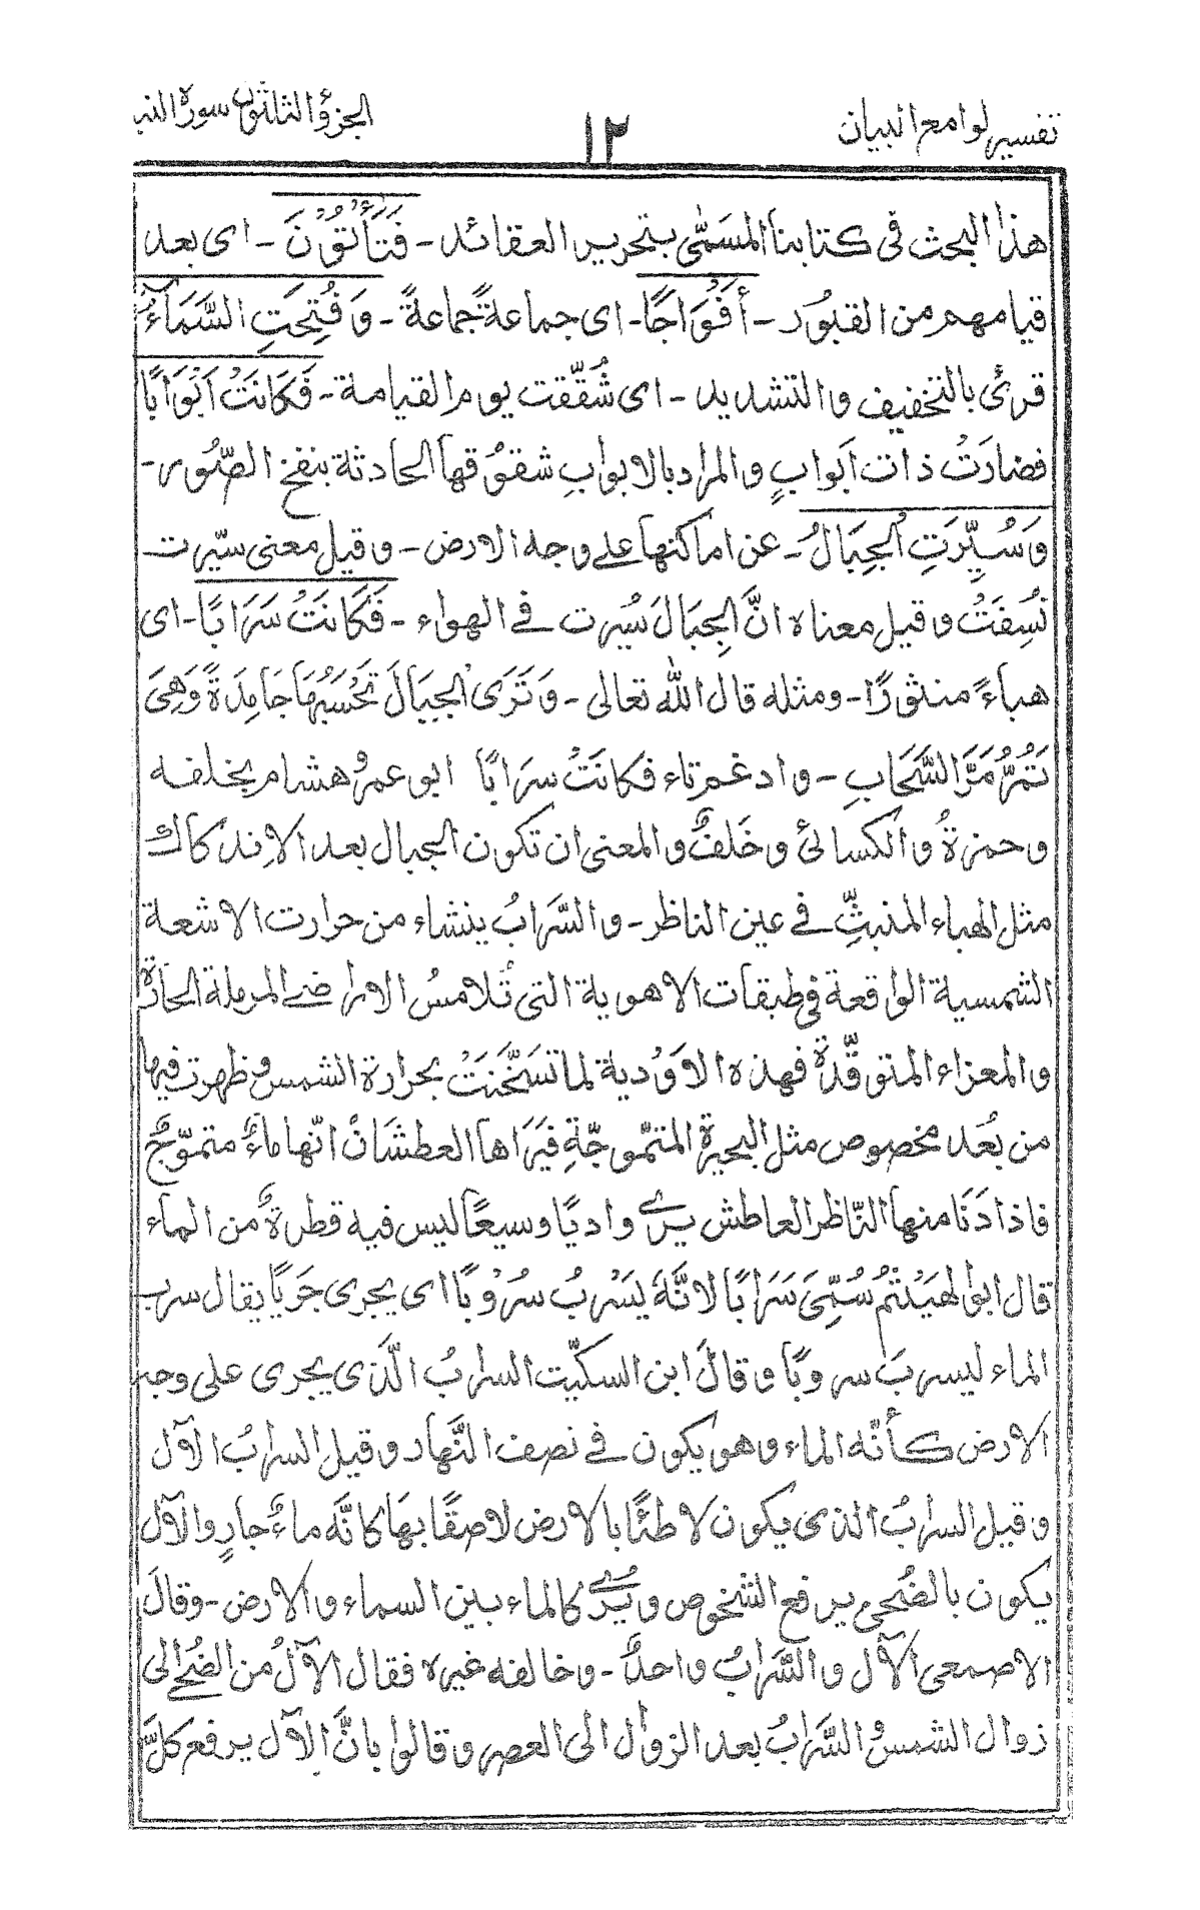 تفسير لوامع البيان ١٢ الجزؤ الثلثون سورة النبا
هذا البحث فى كتابنا المسَمّٰى بتحرير العقائد - فَتَأْتُوْنَ - اى بعد
قيامهم من القبُور - أفْوَاجًا - اى جماعةً جماعةً - وَفُتِحَتِ السَّمَآءُ
قرئ بالتخفيف والتشديد - اى شُقّقت يوم القيامة - فَكَانَتْ اَبْوَابًا
فضارَتْ ذات ابَوابٍ والمراد بالابوابِ شقوُقها الحادثة بنفخ الصّورِ -
وَسُيِّرَتِ الْجِبَالُ - عن اماكنها على وجه الارض - وقيل معنى سيّرت
نُسِفَتْ وقيل معناه انَّ الجِبَالَ سُيرت فى الهواء - فَكَانَتْ سَرَابًا - اى
هباءً منثورًا - ومثله قال الله تعالى - وَتَرَى الْجِبَالَ تَحْسَبُهَا جَامِدَةً وَهِىَ
تَمُرُّ مَرَّ السَّحَابِ - وادغم تاء فكانَتْ سرَابًا ابو عمرو هشام بخلفه
وحمزةُ والكسائىُ وخَلفٌ والمعنى ان تكون الجبال بعد الاِندكاك
مثل الهباء المنبثِّ فى عين الناظر - والسَّرابُ ينشاء من حرارت الاشعة
الشمسية الواقعة فى طبقات الاهوية التى تُلامسُ الاراضى المرملة الحارّة
والمعزاء المتوقّدة فهذه الاوْدية لما تسَخّنَتْ بحرارة الشمس وظهرت فيها
من بُعد مخصوص مثل البحيرة المتمّوجّةِ فيَرَاها العطشَانُ انّها مَاءٌ متموّجٌ
فاذا دَنَا منها النّاظر العاطش يرى واديًا وسيعًا ليس فيه قطرةٌ من الماء
قال ابو الهَيْثَمُ سُمِّىَ سَرَابًا لانَّهٗ يَسْرُبُ سُرُوْبًا اى يجرى جَريًا يقال سرب
الماء ليسربَ سروبًا وقالَ ابن السكيّت السرابُ الّذى يجرى على وجه
الارض كأنّه الماء وهو يكون فى نصف النَّهار وقيل السرابُ الآل
وقيل السرابُ الذى يكون لاطئًا بالارض لاصقًا بهَا كانَّه ماءٌ جارٍ والآل
يكون بالضُحى يرفع الشخوص ويُرى كالماء بين السماء والارض - وقالَ
الاصمعى الآل والسَّرابُ واحدٌ - وخالفه غيره فقال الآلُ من الضُحٰى الى
زوال الشمسُ والسَّرابُ بعد الزوال الى العصر وقالوا بانَّ الآل يرفع كلَّ